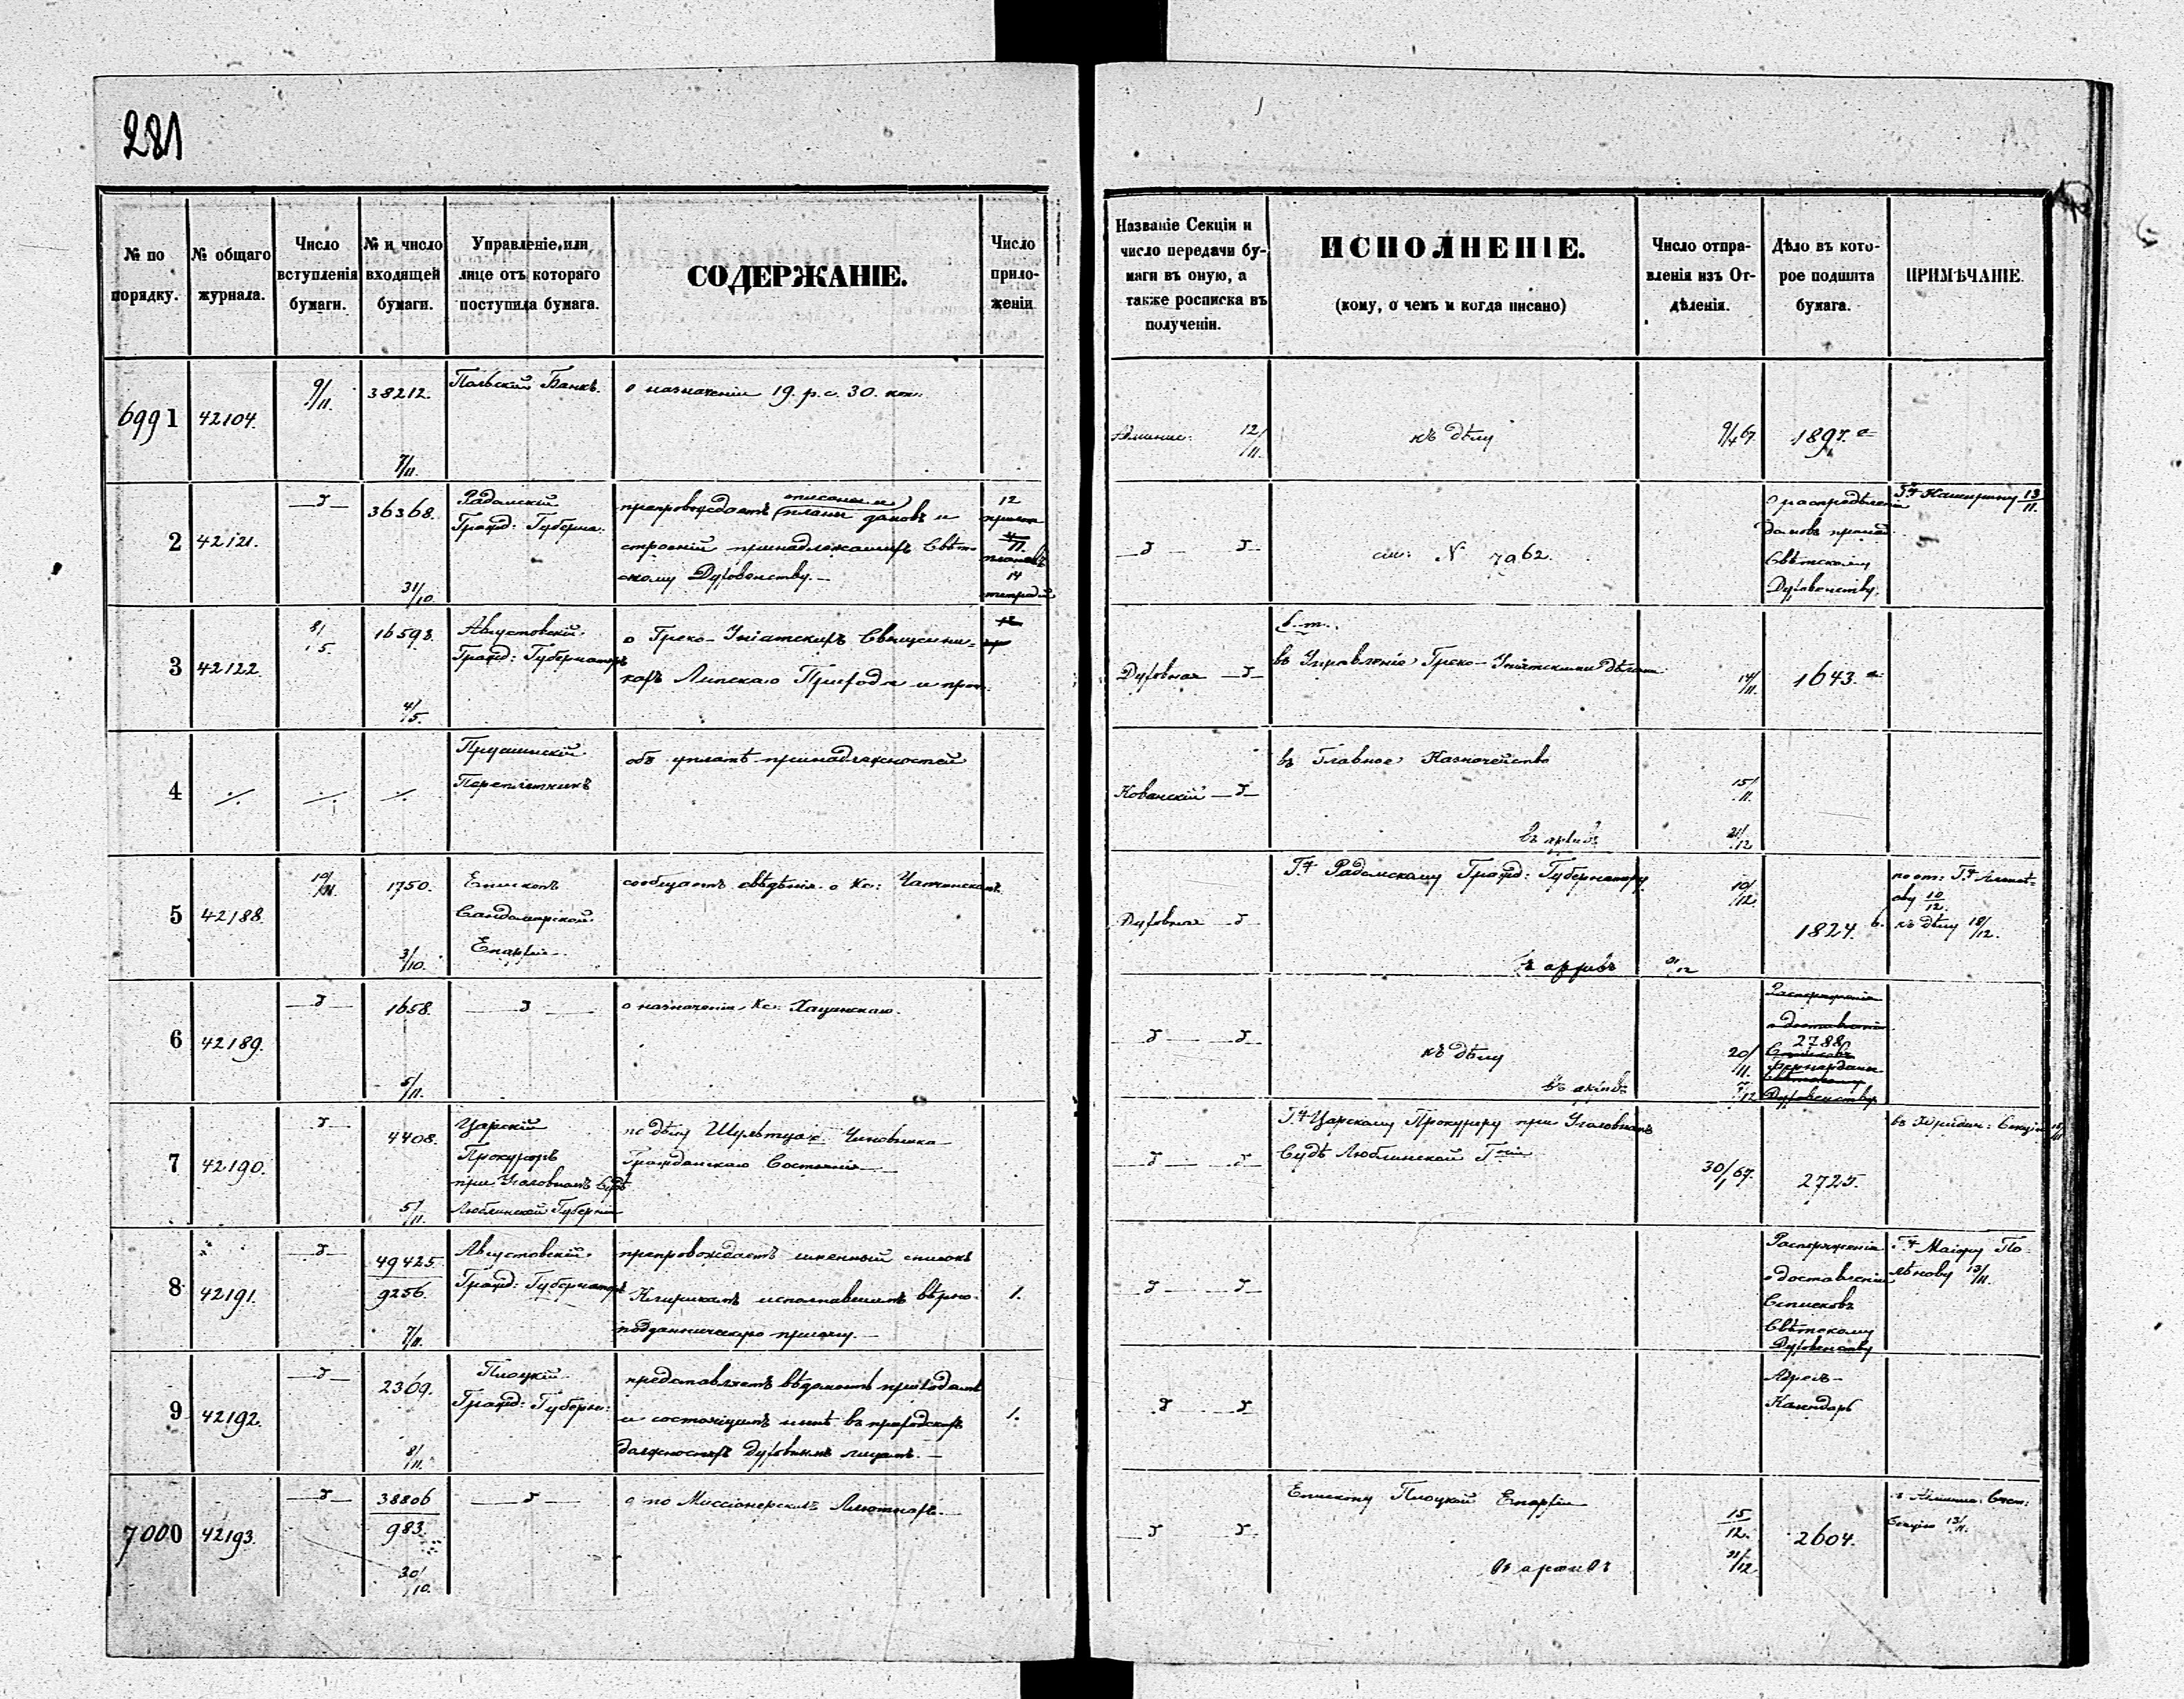 281
№ по порядку.
№ общаго журнала.
Число вступленія бумаги.
№ и число входящей бумаги.
Управленіе, или лице отъ котораго поступила бумага.
СОДЕРЖАНІЕ.
Число приложеній
Названіе Секціи и число передачи бумаги въ оную, а также росписка въ полученіи.
ИСПОЛНЕНІЕ.
(кому, о чемъ и когда писано)
Число отправленія изъ Отдѣленія.
Дѣло въ которое подшита бумага.
ПРИМѢЧАНІЕ.
6991
42104.
9/11.
38212.
7/11.
Польскій Банкъ.
о назначеніи 19. р. с. 30. коп.
12/11.
къ дѣлу
1897.
2
42121.
36368.
31/10.
Радомскій
Гражд: Губерна.
препровождаетъ описаніи и планы домовъ и
строеній принадлежащихъ Свѣт-
скому Духовенству.
12
14
тетрадей
№ 7962.
О распредѣленіи
домовъ принад.
Свѣтскому
Духовенству.
13/11.
3
42122
8/5.
16598.
4/5.
Августовскій
Гражд: Губернаторъ
о Греко-Уніатскихъ Священни-
кахъ Липскаго Прихода и проч.
Духовная
въ Управленіе Греко-Уніатскими дѣлами
14/11.
1643.
4
Прушинскій
Переплетчикъ
объ уплатѣ принадлежностей
Кованскій
въ Главное Казначейство
15/11.
въ архивъ
21/12
5
42188.
10/11.
1750.
3/10.
Епископъ
Сандомирской
Епархіи
сообщаетъ свѣдѣнія о Кс:
Духовная
Г-ну Радомскому Гражд: Губернатору
10/12.
въ архивъ
1824.
10/12.
къ дѣлу 18/12.
6
42189.
1658.
5/11.
о назначеніи Кс:
къ дѣлу
въ архивъ
20/11.
2788
Духовенству
7
42190.
4408.
5/11.
Царскій
Прокуроръ
при Уголовномъ Судѣ
Люблинской Губерніи
по дѣлу Шульца Чиновника
Гражданскаго Состоянія
Г-ну Царскому Прокурору при Уголовномъ
Судѣ Люблинской Г-ніи
30/1 67.
2725.
8
42191.
49425
9256.
7/11.
Августовскій
Гражд: Губернаторъ
препровождаетъ именный списокъ
Клирикамъ исполнавшимъ вѣрно-
подданническую присягу.
1.
Распоряженія
о доставленіи
Списковъ
Свѣтскому
Духовенству
Г-ну Маіору По-
лѣнову 13/11.
9
42192.
2369.
8/11.
Плоцкій
Гражд: Губерн:
представляетъ вѣдомость приходамъ
и состоящимъ нынѣ въ приходскихъ
должностяхъ духовнымъ лицамъ.
1.
Адресъ-
Календарь
7000
42193.
38806
983.
30/10.
о по Миссіонерскихъ
Епископу Плоцкой Епархіи
15/12.
въ архивъ
2604.
Секцію 13/11.